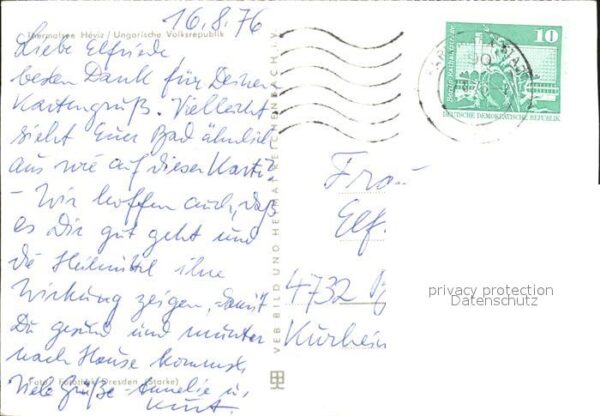 16.8.76
Thermalsee Héviz / Ungarische Volksrepublik
Liebe Elfriede
besten Dank für Deinen
Kartengruß. Vielleicht
sieht Euer Bad ähnlich
aus wie auf dieser Karte.
– Wir hoffen auch, daß
es Dir gut geht und
die Heilmittel ihre
Wirkung zeigen, damit
Du gesund und munter
nach Hause kommst.
Foto: Fotothek Dresden (Starke)
Viele Grüße Annelie u.
Kurt
VEB BILD UND HEIMAT REICHENBACH I. V.
10
DEUTSCHE DEMOKRATISCHE REPUBLIK
90
Frau
Elf.
4732 B
Kurheim
privacy protection
Datenschutz